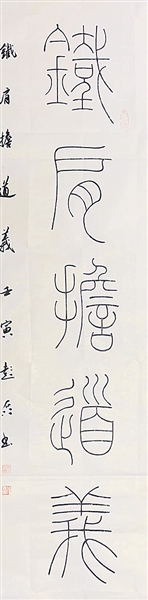 鐵肩擔道義
鐵肩擔道義壬寅彭兵書